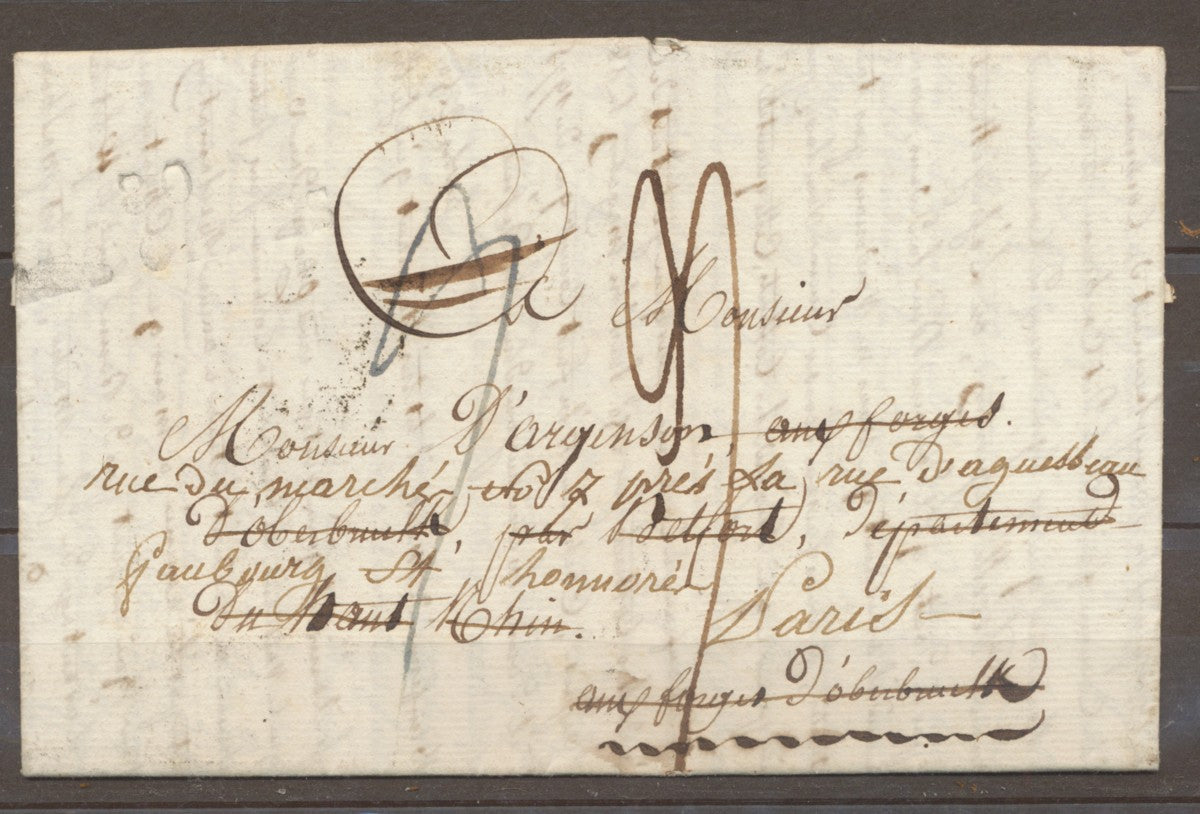 A Monsieur
Monsieur D'argenson, aux forges.
rue du marché no 7 prés La rue d'aguesseau
d'oberbruck, par Belfort, Département
faubourg St honnorée
du haut Rhin.
Paris
aux forges d'oberbruck